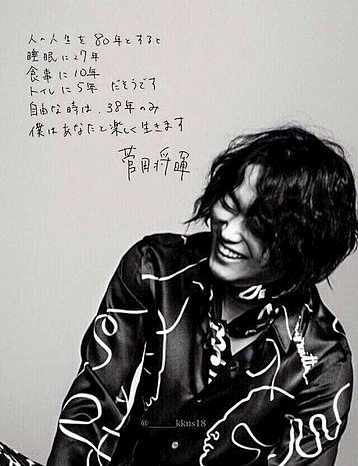 人の人生を80年とすると
睡眠に27年
食事に10年
トイレに5年 だそうです
自由な時は、38年のみ
僕はあなたと楽しく生きます
菅田将暉
@____kkns18